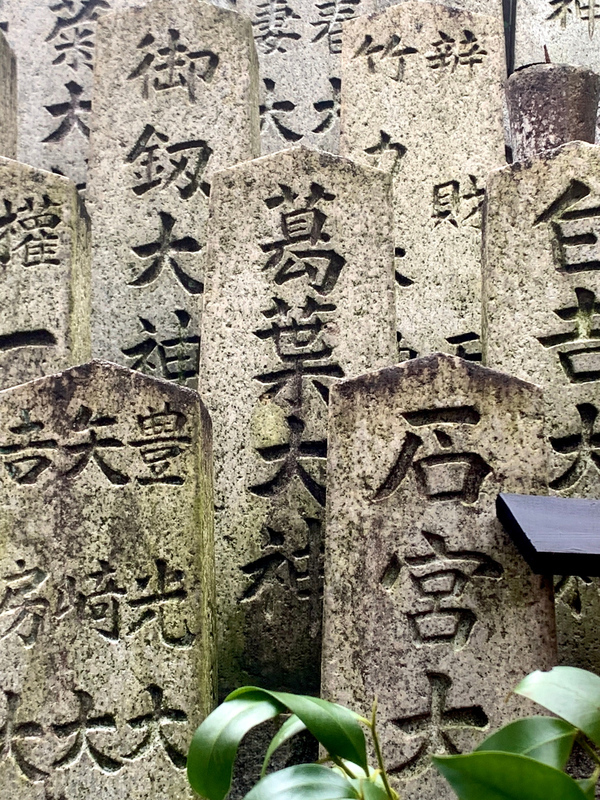 神
春大
妻大
辨財
竹力大
御釼大神
大
白吉大
葛葉大神
權一
石宮大
豊光大
矢崎大
吉房大